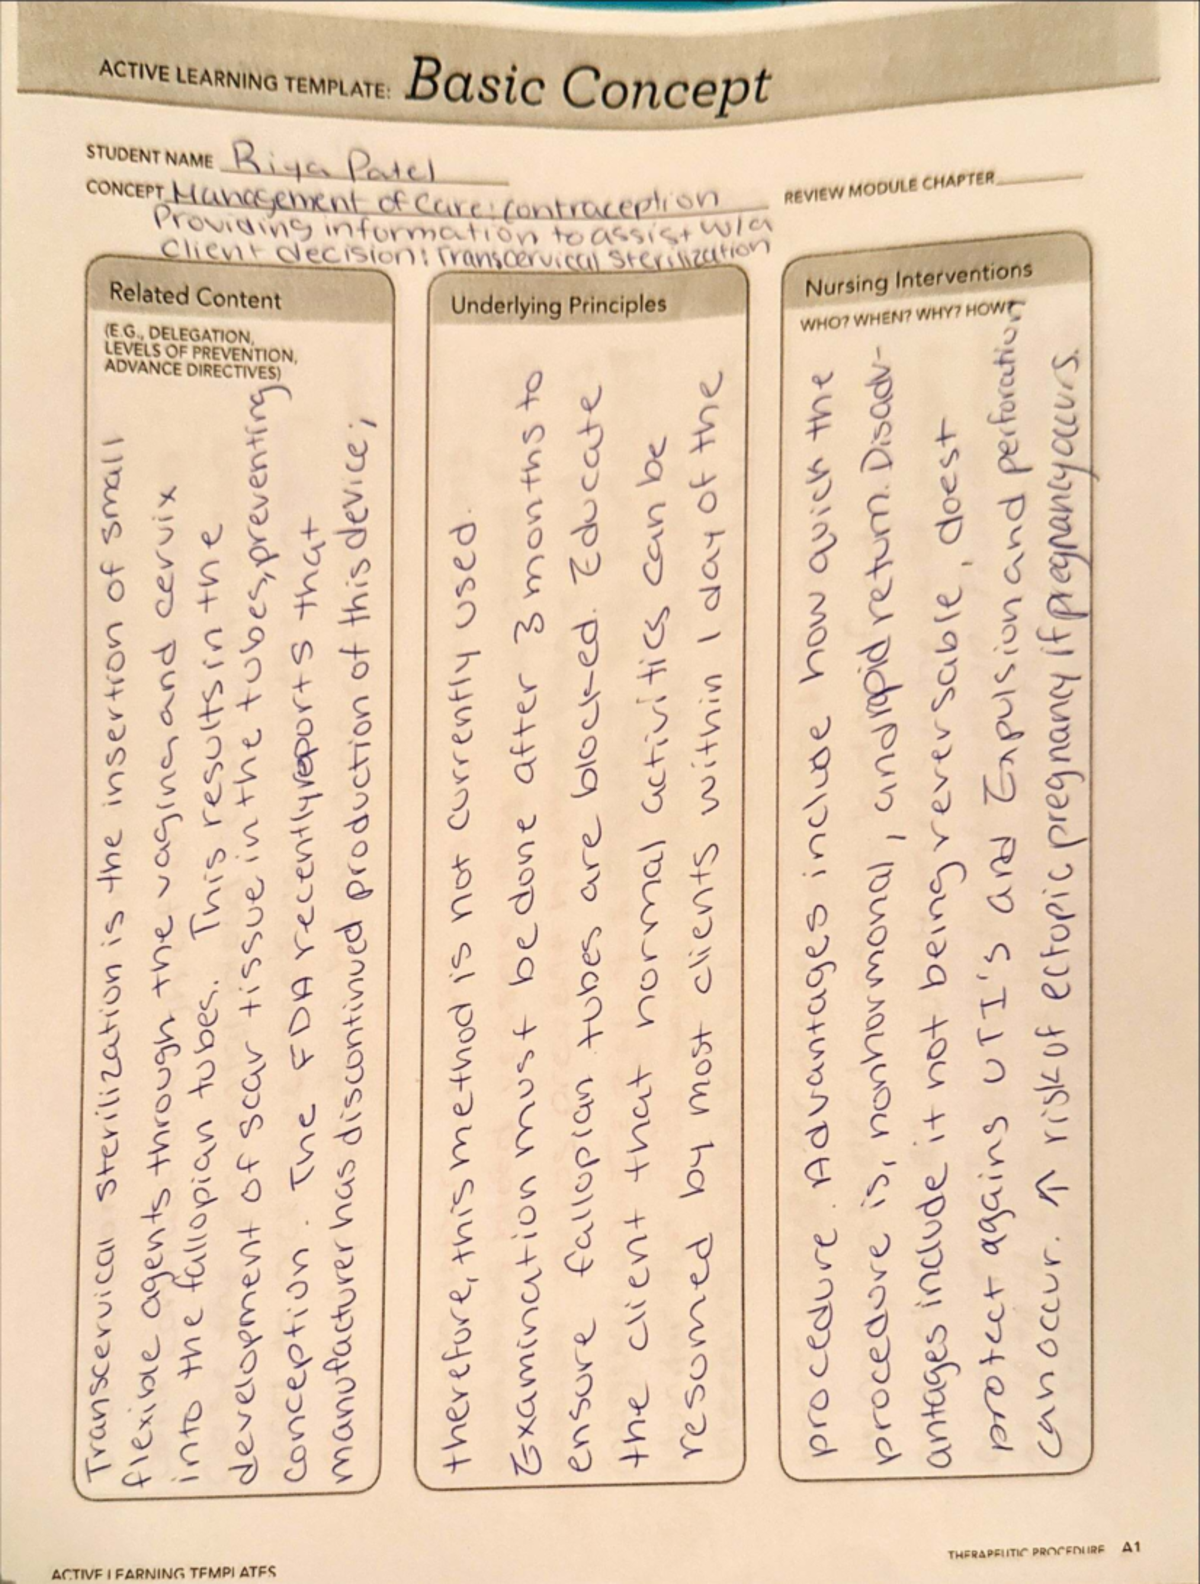 ACTIVE LEARNING TEMPLATE: Basic Concept
STUDENT NAME Riya Patel
CONCEPT Management of Care: Contraception
REVIEW MODULE CHAPTER
Providing information to assist w/a
Client decision: Transcervical Sterilization
Related Content
(E.G., DELEGATION,
LEVELS OF PREVENTION,
ADVANCE DIRECTIVES)
Transcervical sterilization is the insertion of small
flexible agents through the vagina and cervix
into the fallopian tubes. This results in the
development of scar tissue in the tubes, preventing
conception. The FDA recently reports that
manufacturer has discontinued production of this device;
Underlying Principles
therefore, this method is not currently used.
Examination must be done after 3 months to
ensure fallopian tubes are blocked. Educate
the client that normal activities can be
resumed by most clients within 1 day of the
Nursing Interventions
WHO? WHEN? WHY? HOW?
procedure. Advantages include how quick the
procedure is, nonhormonal, and rapid return. Disadv-
antages include it not being reversable, doest
protect agains UTI's and Expulsion and perforation
can occur. ↑ risk of ectopic pregnancy if pregnancy occurs.
THERAPEUTIC PROCEDURE A1
ACTIVE LEARNING TEMPLATES